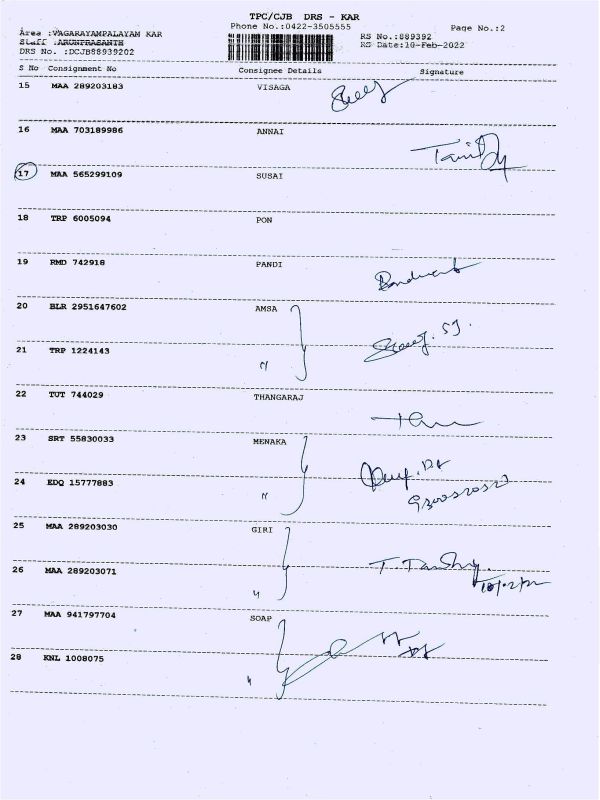 TPC/CJB DRS - KAR
Phone No.:0422-3505555
Page No.:2
Area :VAGARAYAMPALAYAM KAR
Staff :ARUNPRASANTH
DRS No. :DCJB88939202
RS No.:889392
RS Date:10-Feb-2022
S No Consignment No Consignee Details Signature
15 MAA 289203183 VISAGA
16 MAA 703189986 ANNAI
17 MAA 565299109 SUSAI
18 TRP 6005094 PON
19 RMD 742918 PANDI
20 BLR 2951647602 AMSA
21 TRP 1224143
22 TUT 744029 THANGARAJ
23 SRT 55830033 MENAKA
24 EDQ 15777883
25 MAA 289203030 GIRI
26 MAA 289203071
10/02/22
27 MAA 941797704 SOAP
28 KNL 1008075